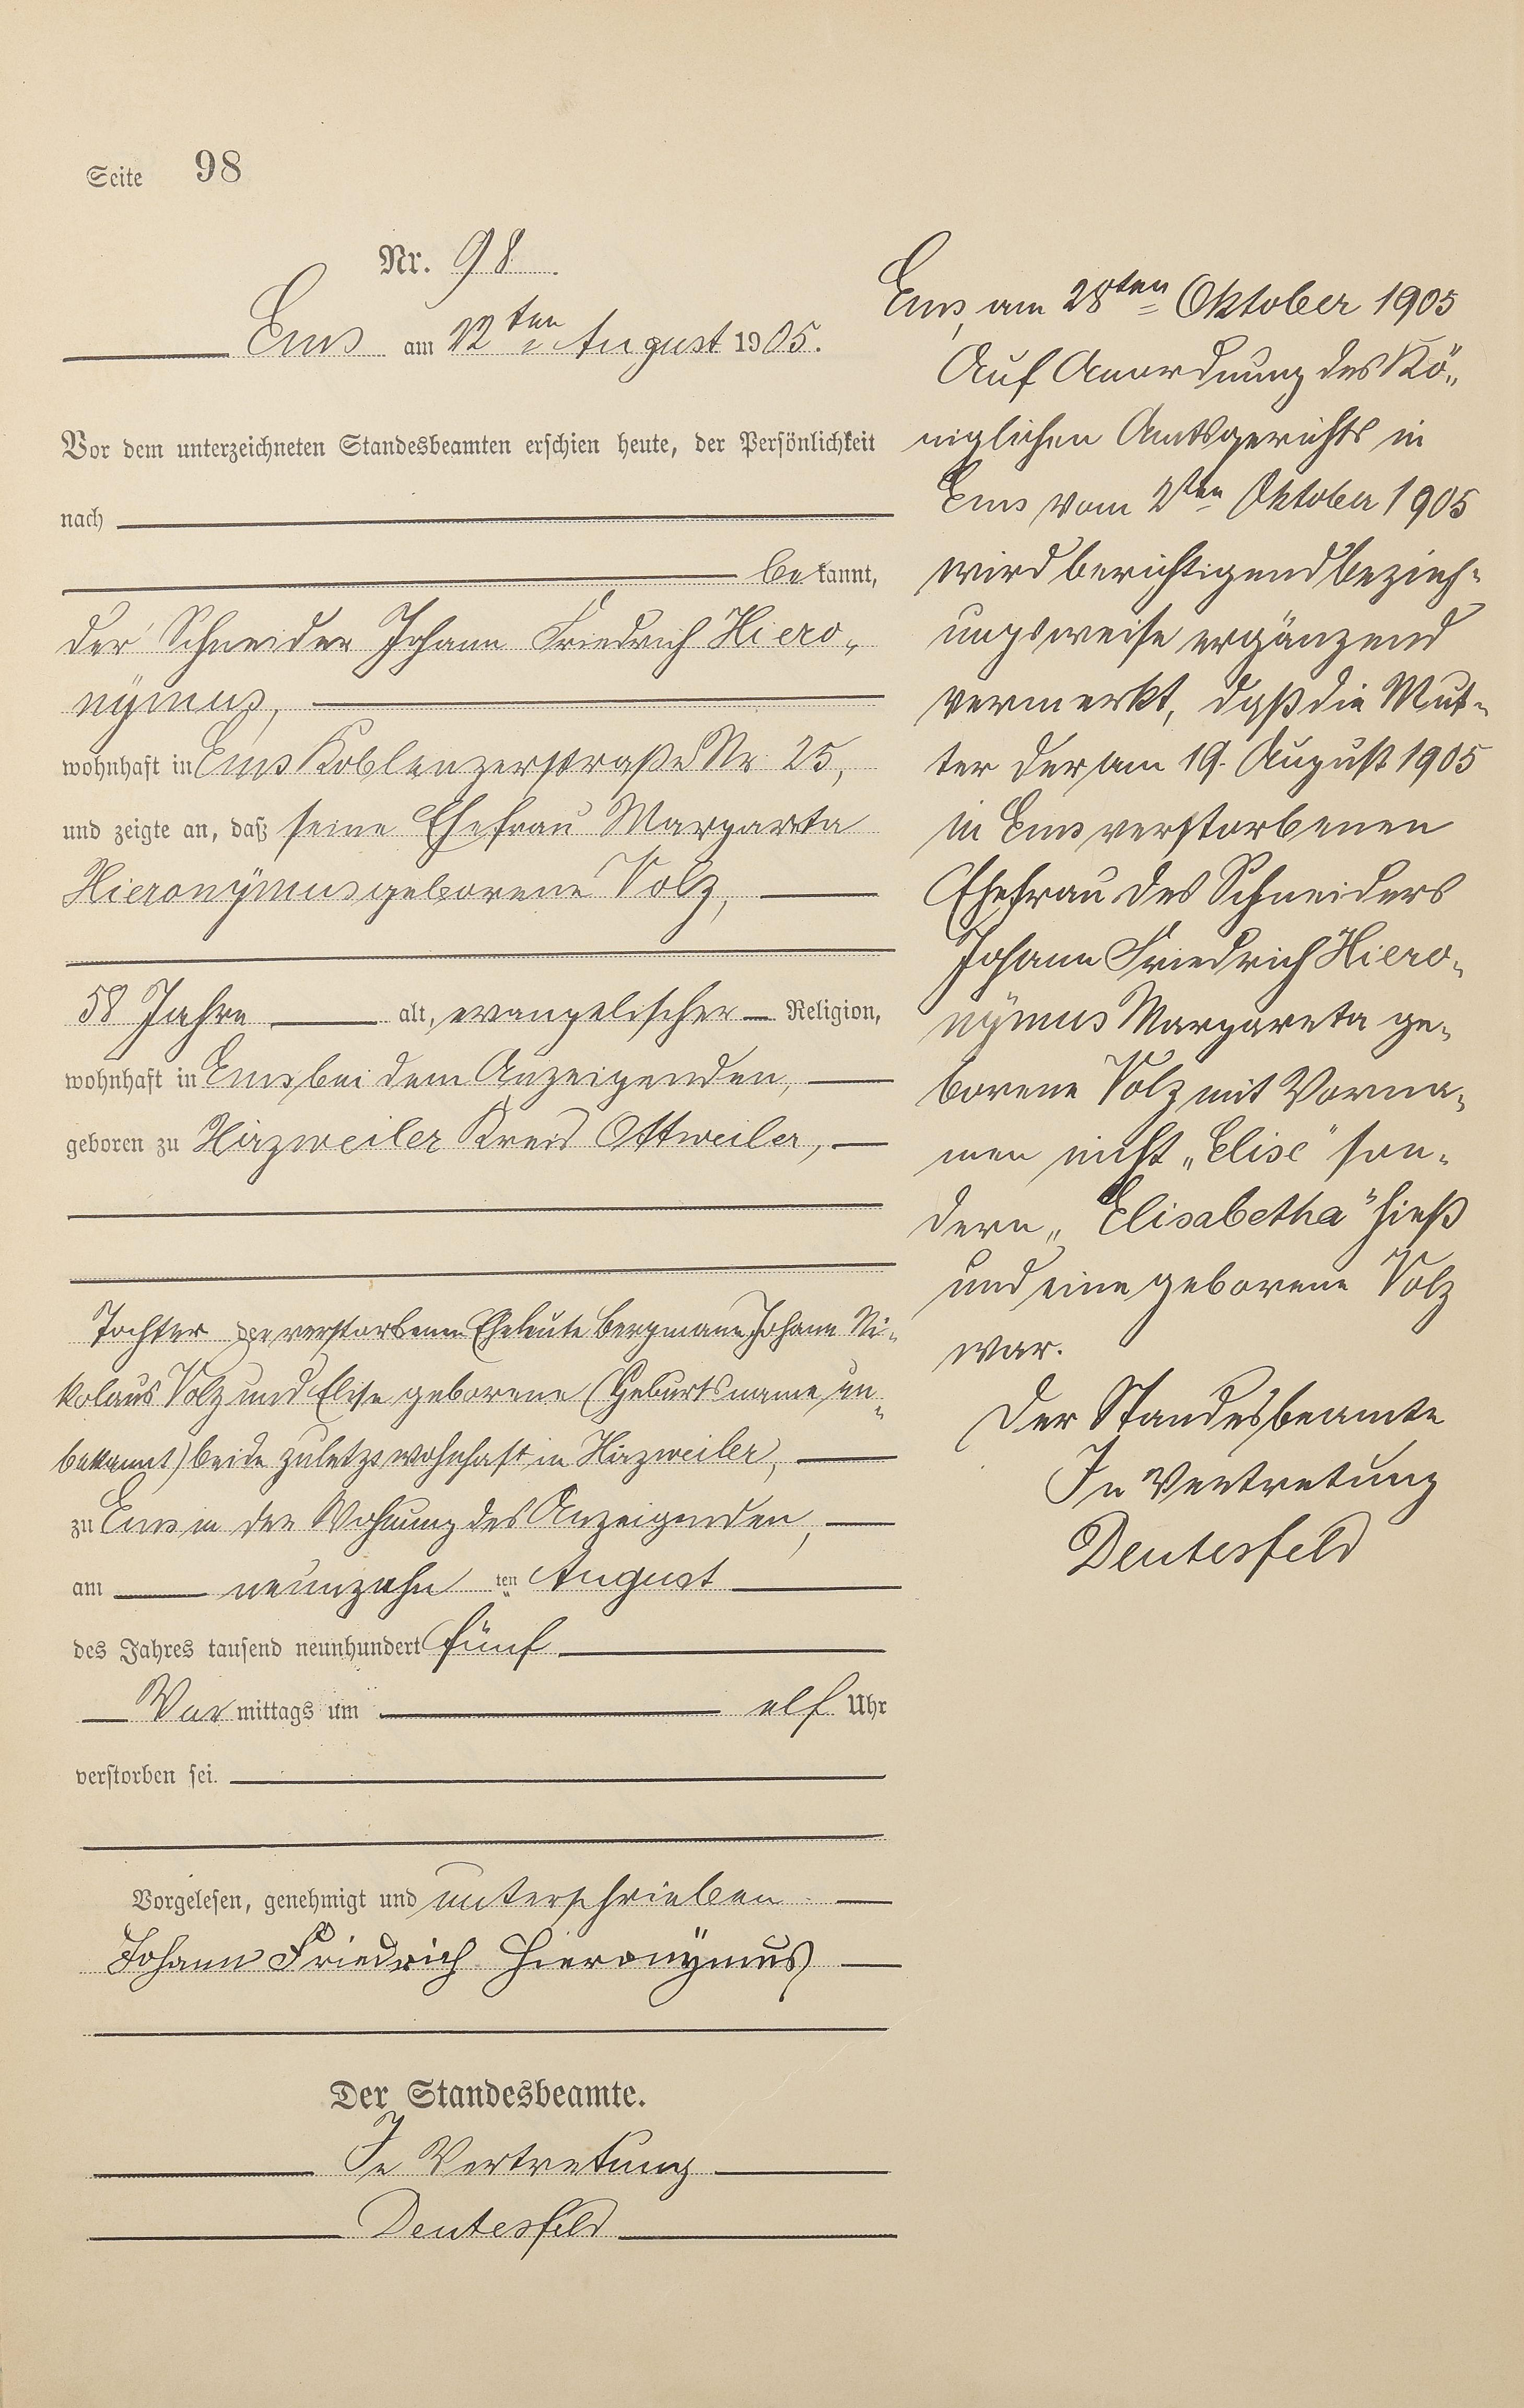 Seite 98
Nr. 98.
Ems am 22ten August 1905.
Vor dem unterzeichneten Standesbeamten erschien heute, der Persönlichkeit
nach
bekannt,
der Schneider Johann Friedrich Hiero-
nÿmus,
wohnhaft in Ems Koblenzerstraße Nr. 25,
und zeigte an, daß seine Ehefrau Margareta
Hieronÿmus geborene Volz,
58 Jahre alt, evangelischer Religion,
wohnhaft in Ems bei dem Anzeigenden,
geboren zu Hirzweiler Kreis Ottweiler,
Tochter der verstorbenen Eheleute Bergmann Johann Ni-
kolaus Volz und Elise geborene (Geburtsname un-
bekannt) beide zuletzt wohnhaft in Hirzweiler,
zu Ems in der Wohnung des Anzeigenden,
am neunzehn ten August
des Jahres tausend neunhundert fünf
Vor mittags um elf Uhr
verstorben sei.
Vorgelesen, genehmigt und unterschrieben
Johann Friedrich Hieronÿmus
Der Standesbeamte.
In Vertretung
Deutesfeld
Ems, am 28ten Oktober 1905
Auf Anordnung des Kö-
niglichen Amtsgerichts in
Ems vom 2ten Oktober 1905
wird berichtigend bezieh-
ungsweise ergänzend
vermerkt, daß die Mut-
ter der am 19. August 1905
in Ems verstorbenen
Ehefrau des Schneiders
Johann Friedrich Hiero-
nÿmus Margareta ge-
borene Volz mit Vorna-
men nicht „Elise" son-
dern „Elisabetha" hieß
und eine geborene Volz
war.
Der Standesbeamte
In Vertretung
Deutesfeld